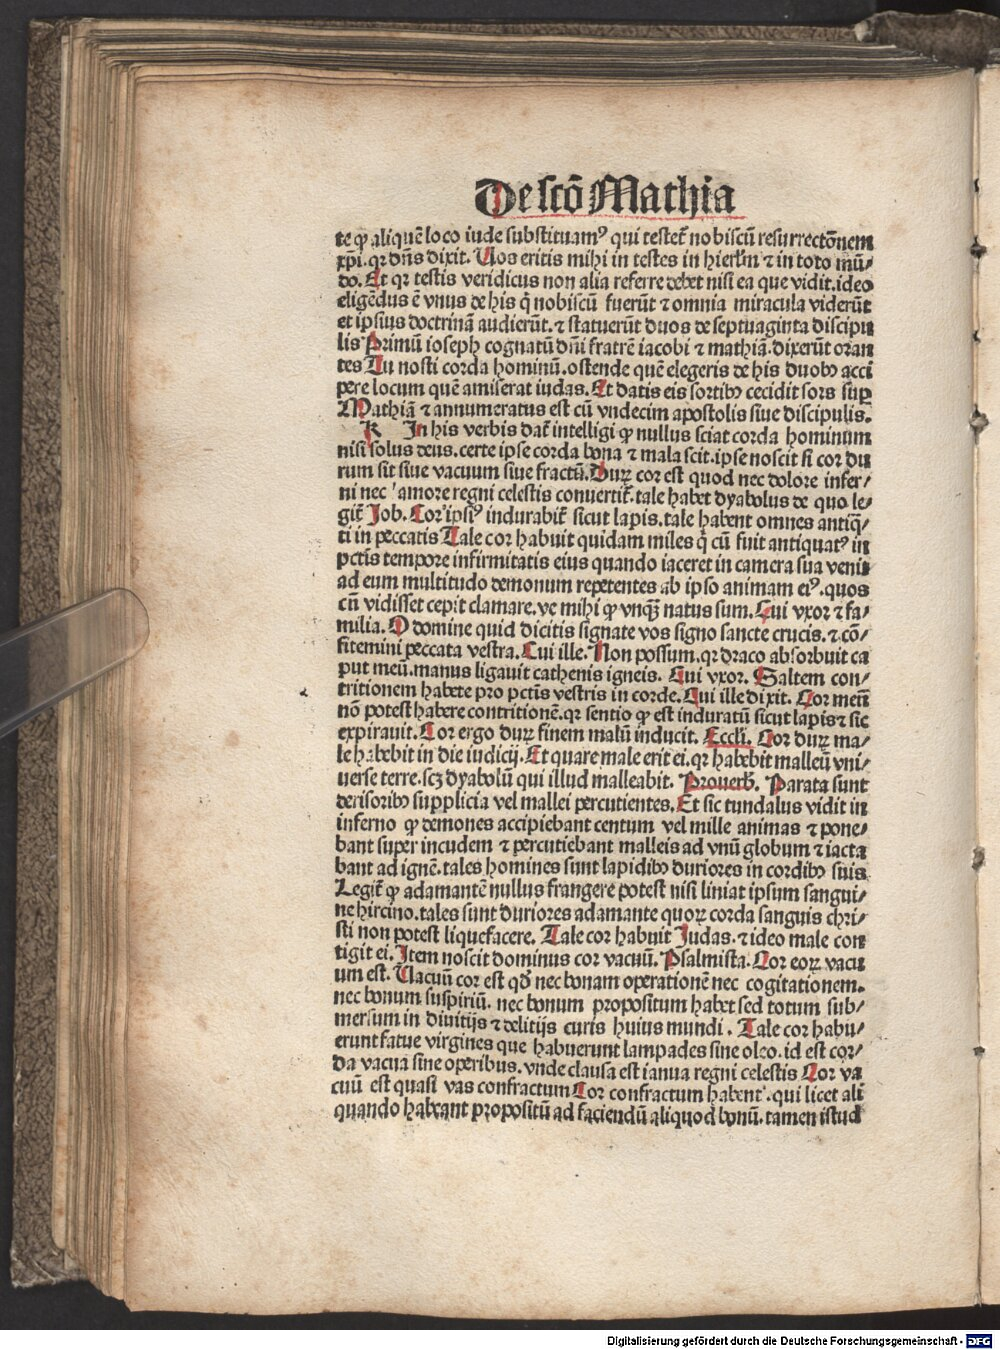 De sctō Mathia
te ꝙ aliquē loco iude substituamꝰ qui testet᷑ nobiscū resurrectōnem
xpi. qꝛ dn̄s dixit. Uos eritis mihi in testes in hierl̄m ⁊ in toto mū⸗
do. Et qꝛ testis veridicus non alia referre debet nisi ea que vidit. ideo
eligēdus ē vnus de his q̄ nobiscū fuerūt ⁊ omnia miracula viderūt
et ipsius doctrinā audierūt. ⁊ statuerūt duos de septuaginta discipu
lis Primū ioseph cognatū dn̄i fratrē iacobi ⁊ mathiā. dixerūt oran
tes Tu nosti corda hominū. ostende quē elegeris de his duobꝫ acci
pere locum quē amiserat iudas. Et datis eis sortibꝫ cecidit sors suꝑ
Mathiā ⁊ annumeratus est cū vndecim apostolis siue discipulis.
R In his verbis dat᷑ intelligi ꝙ nullus sciat corda hominum
nisi solus deus. certe ipse corda bona ⁊ mala scit. ipse noscit si cor du
rum sit siue vacuum siue fractū. Duꝝ cor est quod nec dolore infer⸗
ni nec amore regni celestis conuertit᷑. tale habet dyabolus de quo le⸗
git᷑ Job. Cor ipsiꝰ indurabit᷑ sicut lapis. tale habent omnes antiq̄⸗
ti in peccatis Tale cor habuit quidam miles q̄ cū fuit antiquatꝰ in
pctīs tempore infirmitatis eius quando iaceret in camera sua venit
ad eum multitudo demonum repetentes ab ipso animam eiꝰ. quos
cū vidisset cepit clamare. ve mihi ꝙ vnqꝫ natus sum. Cui vxor ⁊ fa⸗
milia. O domine quid dicitis signate vos signo sancte crucis. ⁊ cō⸗
fitemini peccata vestra. Cui ille. Non possum. qꝛ draco absorbuit ca
put meū. manus ligauit cathenis igneis. Cui vxor. Saltem con⸗
tritionem habete pro pctīs vestris in corde. Cui ille dixit. Cor meū
nō potest habere contritionē. qꝛ sentio ꝙ est induratū sicut lapis ⁊ sic
expirauit. Cor ergo duꝝ finem malū inducit. Eccli. Cor duꝝ ma⸗
le habebit in die iudicij. Et quare male erit ei. qꝛ habebit malleū vni⸗
uerse terre. scꝫ dyabolū qui illud malleabit. Prouerb. Parata sunt
derisoribꝫ supplicia vel mallei percutientes. Et sic tundalus vidit in
inferno ꝙ demones accipiebant centum vel mille animas ⁊ pone⸗
bant super incudem ⁊ percutiebant malleis ad vnū globum ⁊ iacta
bant ad ignē. tales homines sunt lapidibꝫ duriores in cordibꝫ suis
Legit᷑ ꝙ adamantē nullus frangere potest nisi liniat ipsum sangui⸗
ne hircino. tales sunt duriores adamante quoꝝ corda sanguis chri⸗
sti non potest liquefacere. Tale cor habuit Judas. ⁊ ideo male con
tigit ei. Item noscit dominus cor vacuū. Psalmista. Cor eoꝝ vacu
um est. Uacuū cor est qd̄ nec bonam operationē nec cogitationem.
nec bonum suspiriū. nec bonum propositum habet sed totum sub⸗
mersum in diuitijs ⁊ delitijs curis huius mundi. Tale cor habu⸗
erunt fatue virgines que habuerunt lampades sine oleo. id est cor⸗
da vacua sine operibus. vnde clausa est ianua regni celestis Cor va
cuū est quasi vas confractum Cor confractum habent. qui licet ali
quando habeant propositū ad faciendū aliquod bonū. tamen istud
Digitalisierung gefördert durch die Deutsche Forschungsgemeinschaft - DFG